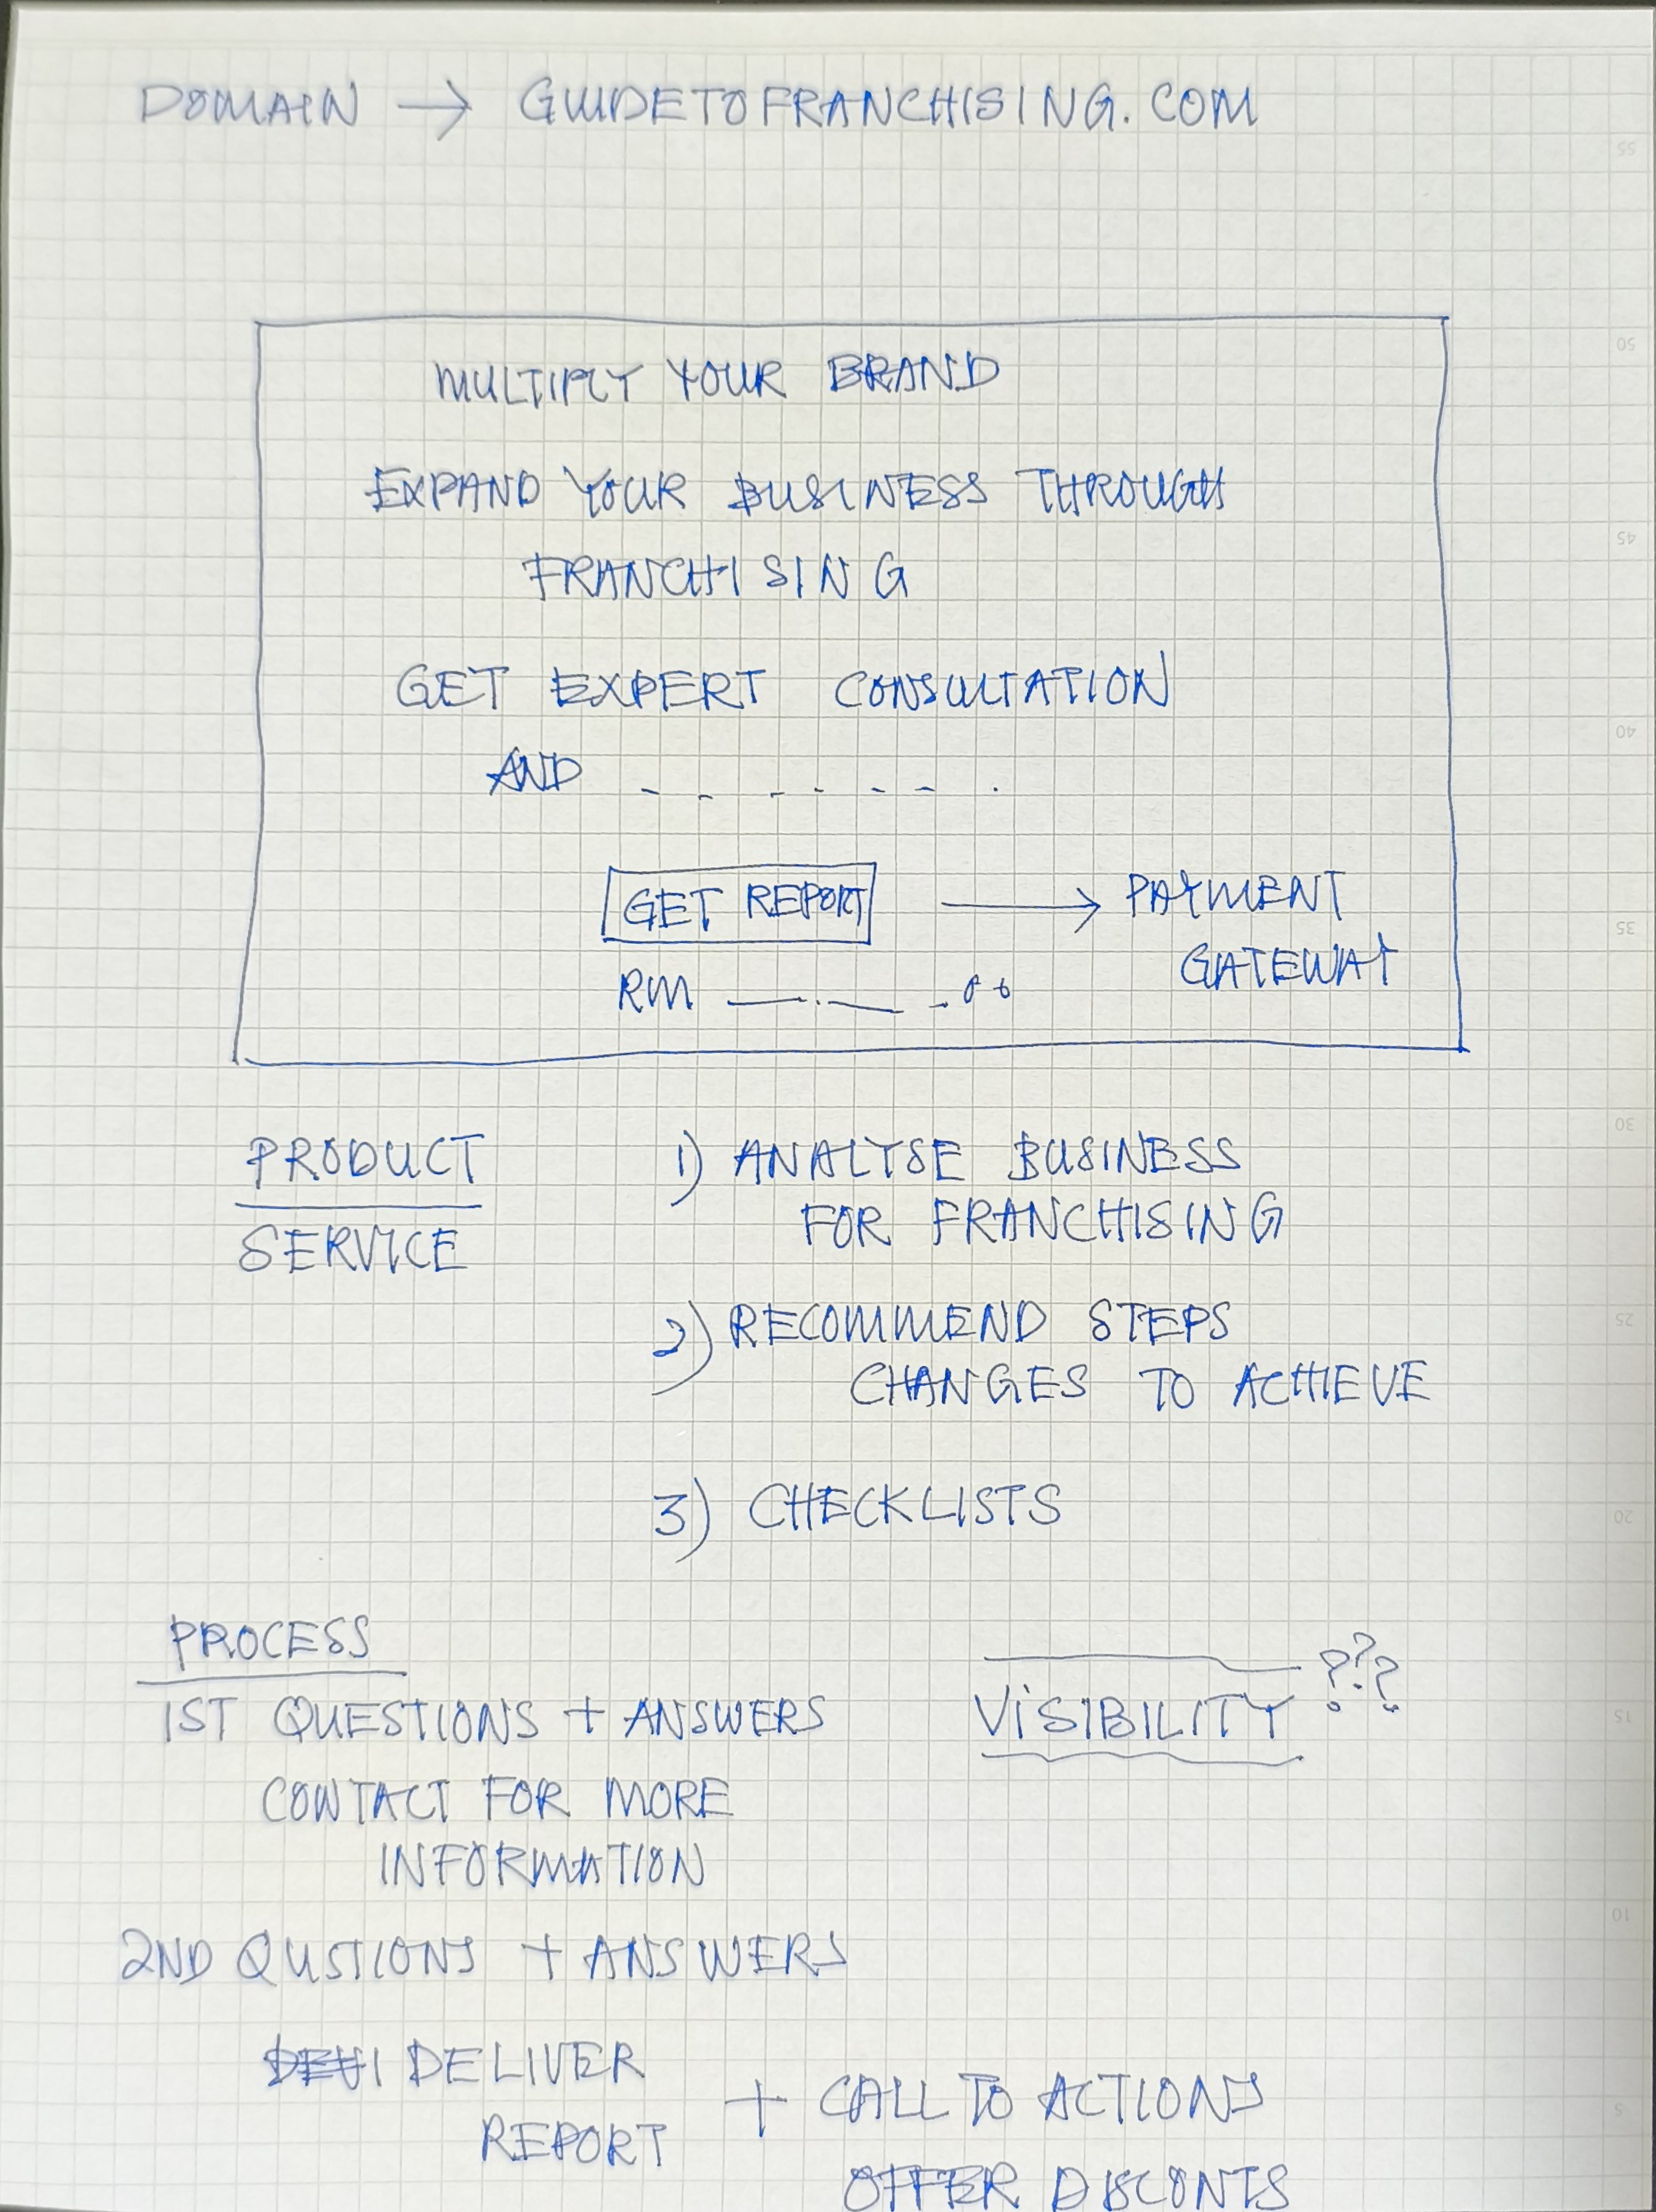 DOMAIN → GUIDETOFRANCHISING.COM
MULTIPLY YOUR BRAND
EXPAND YOUR BUSINESS THROUGH
FRANCHISING
GET EXPERT CONSULTATION
AND - - - - - - .
GET REPORT → PAYMENT
GATEWAY
RM
PRODUCT
SERVICE
1) ANALYSE BUSINESS
FOR FRANCHISING
2) RECOMMEND STEPS
CHANGES TO ACHIEVE
3) CHECKLISTS
PROCESS
1ST QUESTIONS + ANSWERS
VISIBILITY ???
CONTACT FOR MORE
INFORMATION
2ND QUSTIONS + ANSWERS
DELIVER
REPORT
+ CALL TO ACTIONS
OFFER DISCONTS
55
50
45
40
35
30
25
20
15
10
5